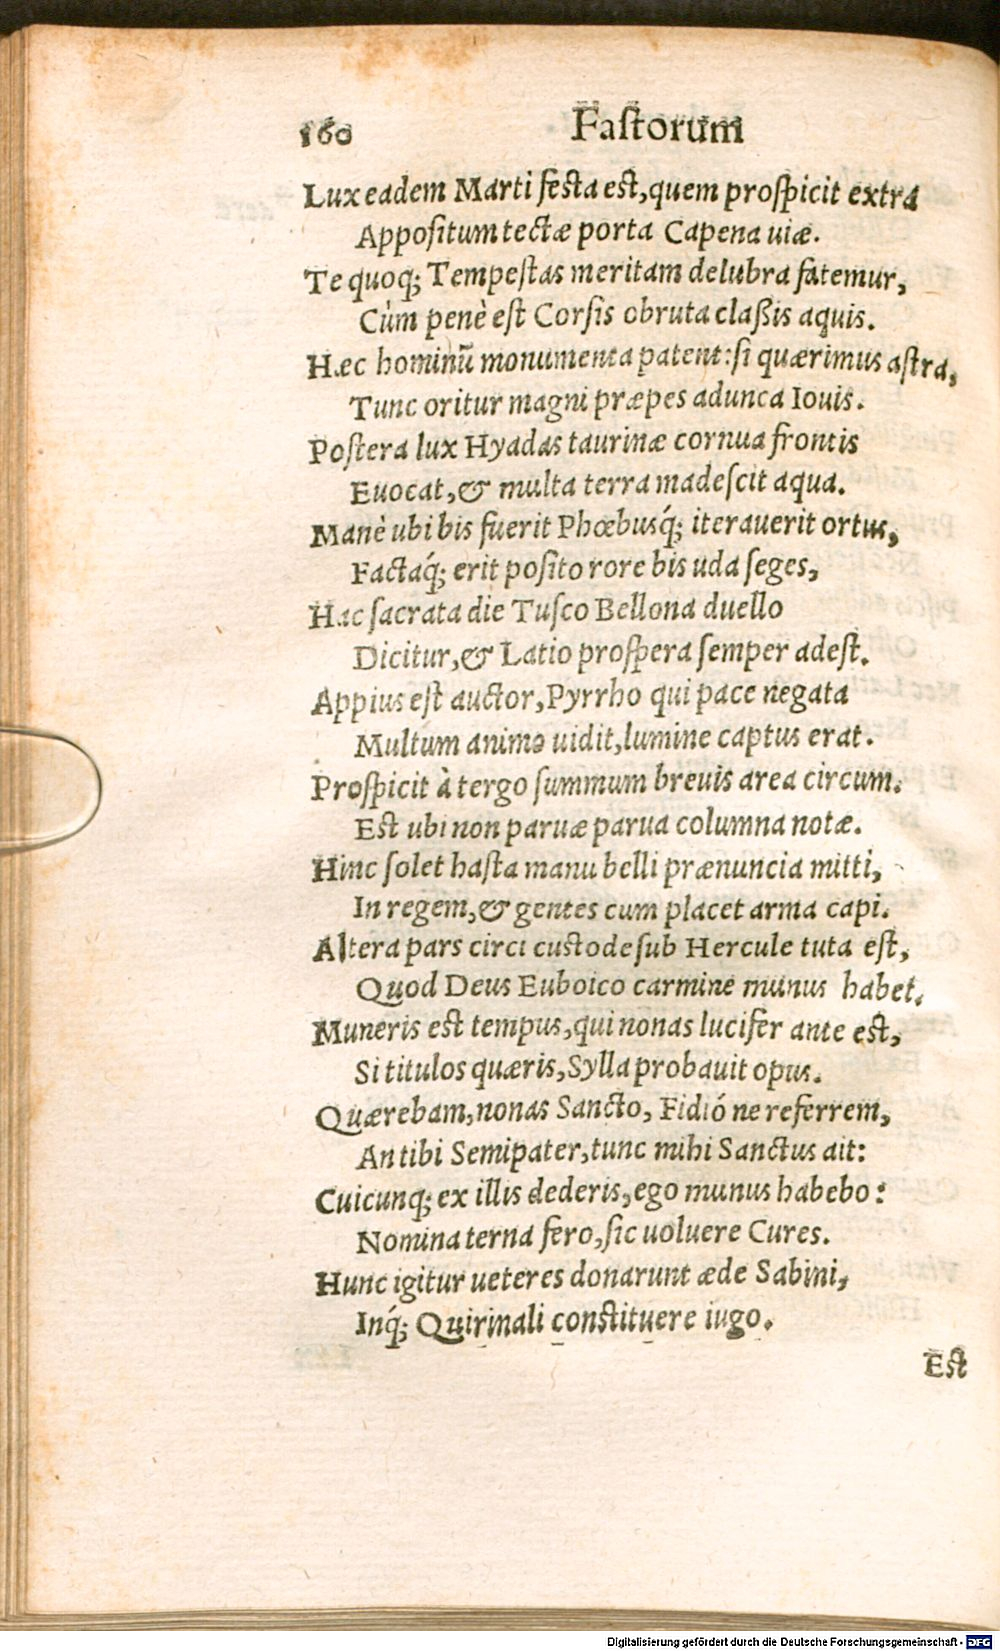 160 Faſtorum
Lux eadem Marti feſta eſt, quem proſpicit extra
Appoſitum tectæ porta Capena uiæ.
Te quoq; Tempeſtas meritam delubra fatemur,
Cùm penè eſt Corſis obruta claßis aquis.
Hæc hominũ monumenta patent: ſi quærimus aſtra,
Tunc oritur magni præpes adunca Iouis.
Poſtera lux Hyadas taurinæ cornua frontis
Euocat, & multa terra madeſcit aqua.
Manè ubi bis fuerit Phœbusq́; iterauerit ortus,
Factaq́; erit poſito rore bis uda ſeges,
Hac ſacrata die Tuſco Bellona duello
Dicitur, & Latio proſpera ſemper adeſt.
Appius eſt auctor, Pyrrho qui pace negata
Multum animo uidit, lumine captus erat.
Proſpicit à tergo ſummum breuis area circum.
Eſt ubi non paruæ parua columna notæ.
Hinc ſolet haſta manu belli prænuncia mitti,
In regem, & gentes cum placet arma capi.
Altera pars circi cuſtode ſub Hercule tuta eſt,
Quod Deus Euboico carmine munus habet.
Muneris eſt tempus, qui nonas lucifer ante eſt,
Si titulos quæris, Sylla probauit opus.
Quærebam, nonas Sancto, Fidió ne referrem,
An tibi Semipater, tunc mihi Sanctus ait:
Cuicunq; ex illis dederis, ego munus habebo:
Nomina terna fero, ſic uoluere Cures.
Hunc igitur ueteres donarunt æde Sabini,
Inq́; Quirinali conſtituere iugo.
Eſt
Digitalisierung gefördert durch die Deutsche Forschungsgemeinschaft - DFG